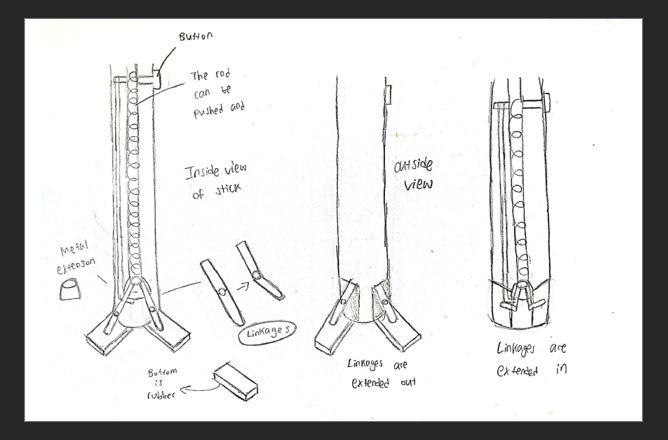 Button
The rod
can be
pushed and
Inside view
of stick
outside
view
Metal
extension
Linkages
Bottom
is
rubber
Linkages are
extended out
Linkages are
extended in